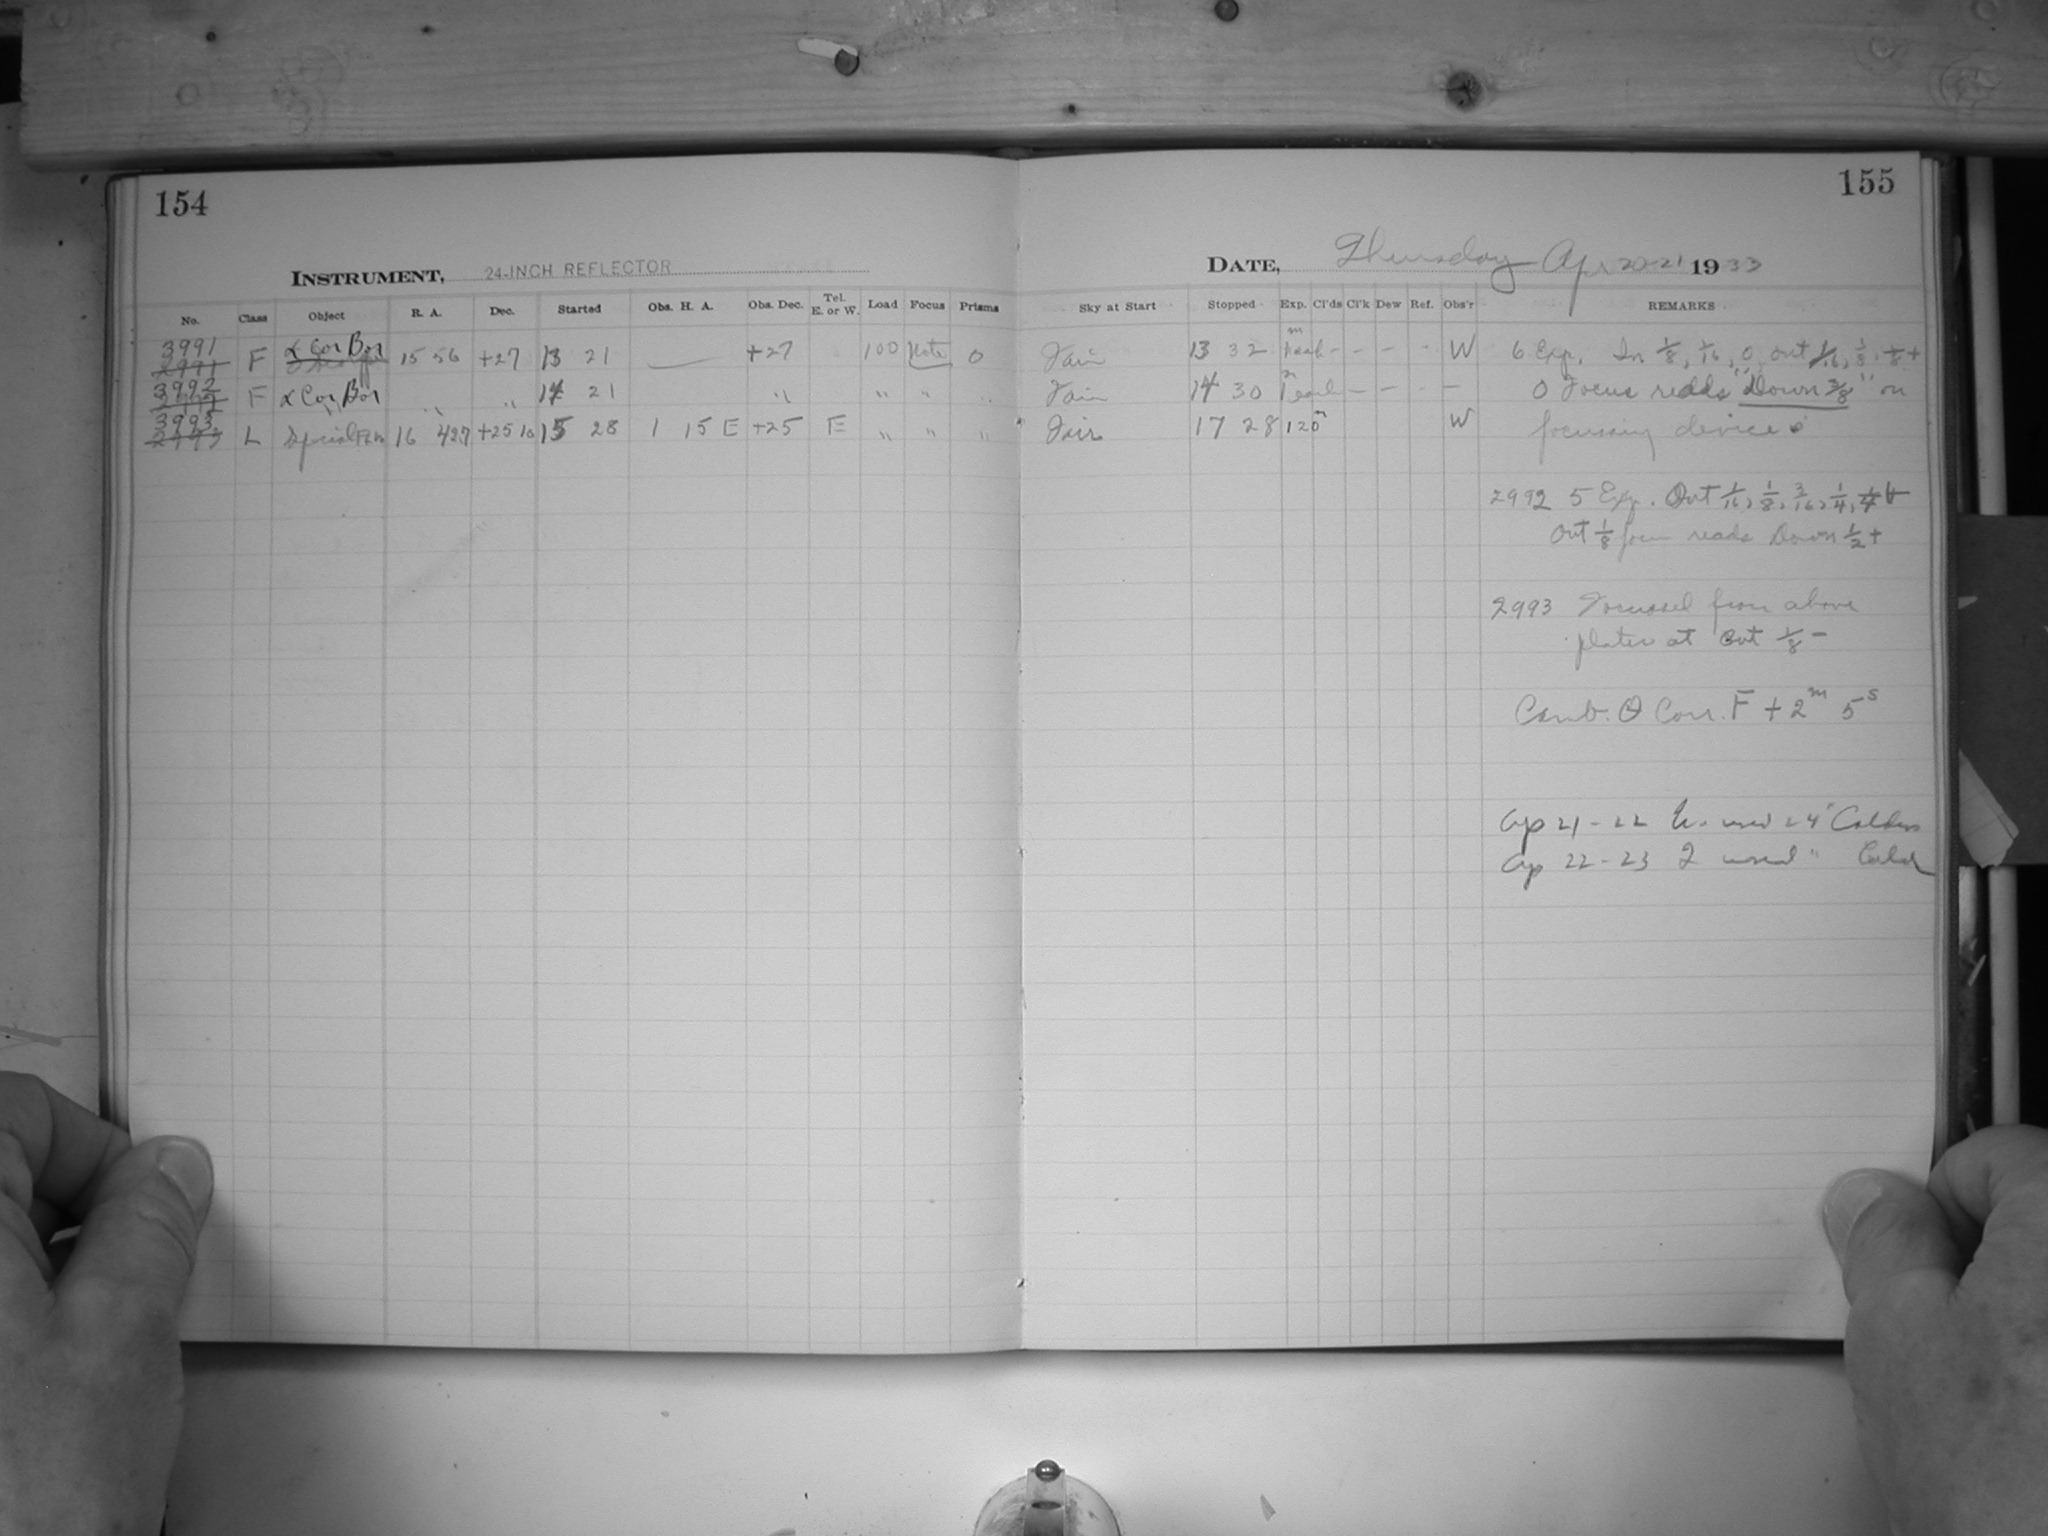 154
155
INSTRUMENT, 24-INCH REFLECTOR
DATE, Thursday Apr 20-21 1933
No. Class Object R. A. Dec. Started Obs. H. A. Obs. Dec. Tel. E. or W. Load Focus Prisms Sky at Start Stopped Exp. Cl'ds Cl'k Dew Ref. Obs'r REMARKS
3991 2991 F α Cor Bor 15 56 +27 13 21 — +27 100 0 Fair 13 32 m - - - - W 6 Exp. In 1/8, 1/16, 0, out 1/16, 1/8, 1/8+
3992 2992 F α Cor Bor " " 14 21 " " " " Fair 14 30 1m each - - - - 0 Focus reads "Down 3/8" on
3993 2993 L 16 42.7 +25 10 15 28 1 15 E +25 E " " " Fair 17 28 120m W focussing device
2992 5 Exp. Out 1/16, 1/8, 3/16, 1/4, 1/4+
Out 1/8 focus reads Down 1/2 +
2993 Focussed from above
plates at Out 1/8 -
Camb. θ Corr. F + 2m 5s
Ap 21-22 used 24"
Ap 22-23 I used "